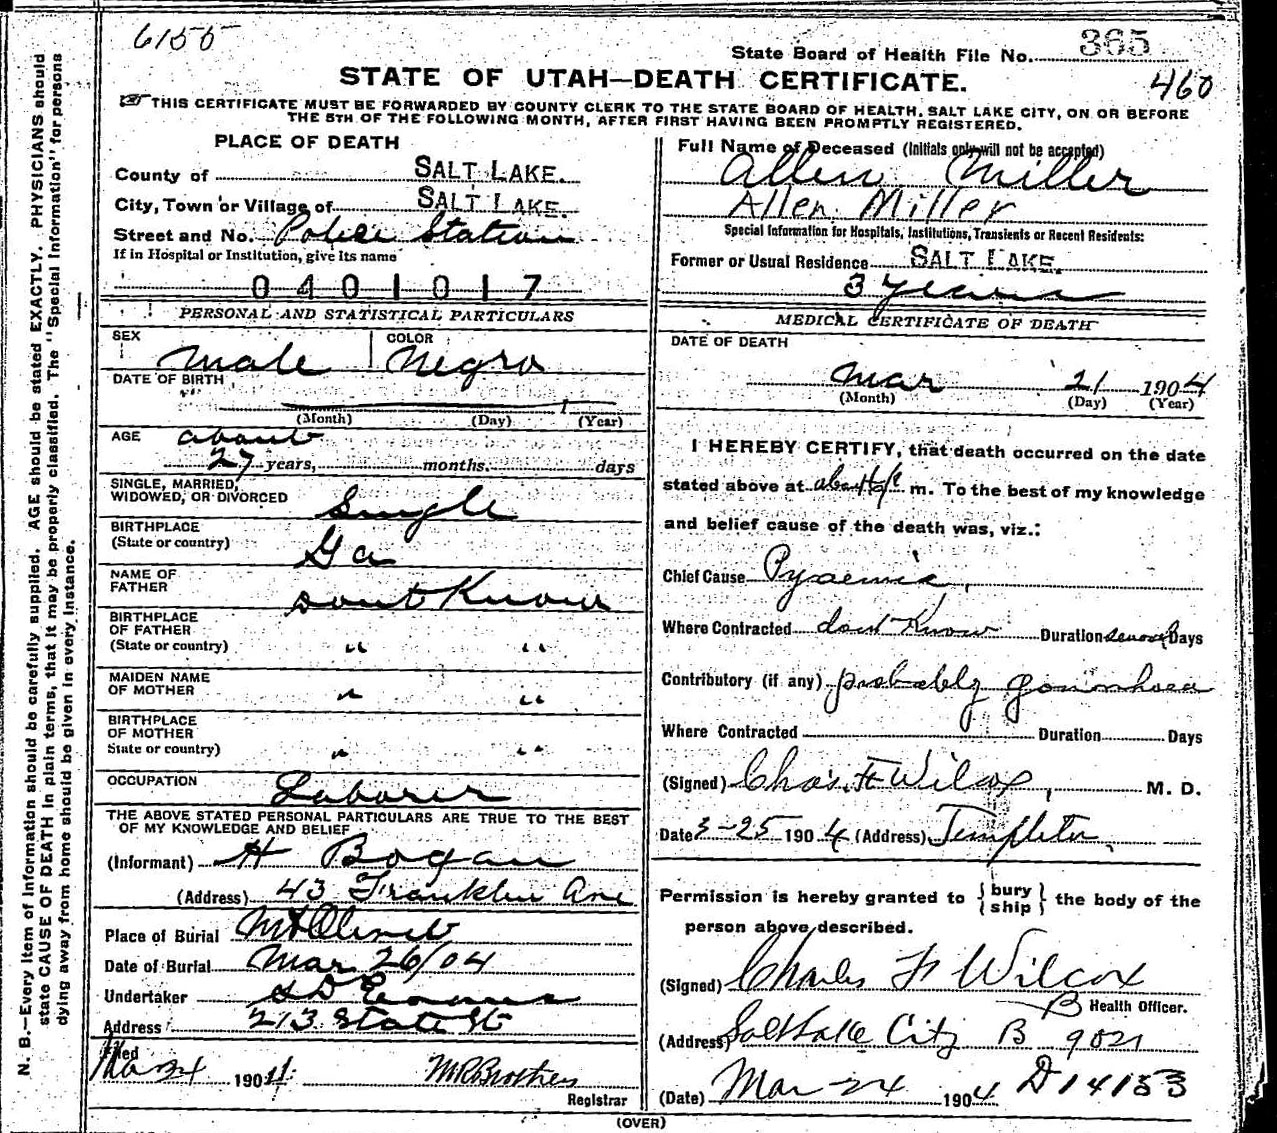 6155
State Board of Health File No. 365
STATE OF UTAH—DEATH CERTIFICATE.
460
THIS CERTIFICATE MUST BE FORWARDED BY COUNTY CLERK TO THE STATE BOARD OF HEALTH, SALT LAKE CITY, ON OR BEFORE
THE 5TH OF THE FOLLOWING MONTH, AFTER FIRST HAVING BEEN PROMPTLY REGISTERED.
N. B.—Every item of information should be carefully supplied. AGE should be stated EXACTLY. PHYSICIANS should
state CAUSE OF DEATH in plain terms, that it may be properly classified. The "Special Information" for persons
dying away from home should be given in every instance.
PLACE OF DEATH
County of SALT LAKE.
City, Town or Village of SALT LAKE.
Street and No. Police Station
If in Hospital or Institution, give its name
0401017
PERSONAL AND STATISTICAL PARTICULARS
SEX Male
COLOR Negro
DATE OF BIRTH
(Month) (Day) 1 (Year)
AGE about
27 years, months. days
SINGLE, MARRIED,
WIDOWED, OR DIVORCED Single
BIRTHPLACE
(State or country) Ga
NAME OF
FATHER dont Know
BIRTHPLACE
OF FATHER
(State or country) " "
MAIDEN NAME
OF MOTHER " "
BIRTHPLACE
OF MOTHER
State or country) " "
OCCUPATION Laborer
THE ABOVE STATED PERSONAL PARTICULARS ARE TRUE TO THE BEST
OF MY KNOWLEDGE AND BELIEF
(Informant) H Bogan
(Address) 43 Franklin Ave
Place of Burial Mt Olivet
Date of Burial Mar 26/04
Undertaker S D Evans
Address 213 State St
Filed
Mar 24 1904 M R Brothers
Registrar
Full Name of Deceased (Initials only will not be accepted)
Allen Miller
Allen Miller
Special Information for Hospitals, Institutions, Transients or Recent Residents:
Former or Usual Residence SALT LAKE.
3 years
MEDICAL CERTIFICATE OF DEATH
DATE OF DEATH
Mar 21 1904
(Month) (Day) (Year)
I HEREBY CERTIFY, that death occurred on the date
stated above at m. To the best of my knowledge
and belief cause of the death was, viz.:
Chief Cause Pyaemia,
Where Contracted dont Know Duration several Days
Contributory (if any) probably gonnrhoea
Where Contracted Duration Days
(Signed) Chas. F Wilcox, M. D.
Date 3-25 1904 (Address) Templeton
Permission is hereby granted to { bury
ship } the body of the
person above described.
(Signed) Charles F Wilcox
B Health Officer.
(Address) Salt Lake City B 9021
(Date) Mar 24 1904 D 14153
(OVER)